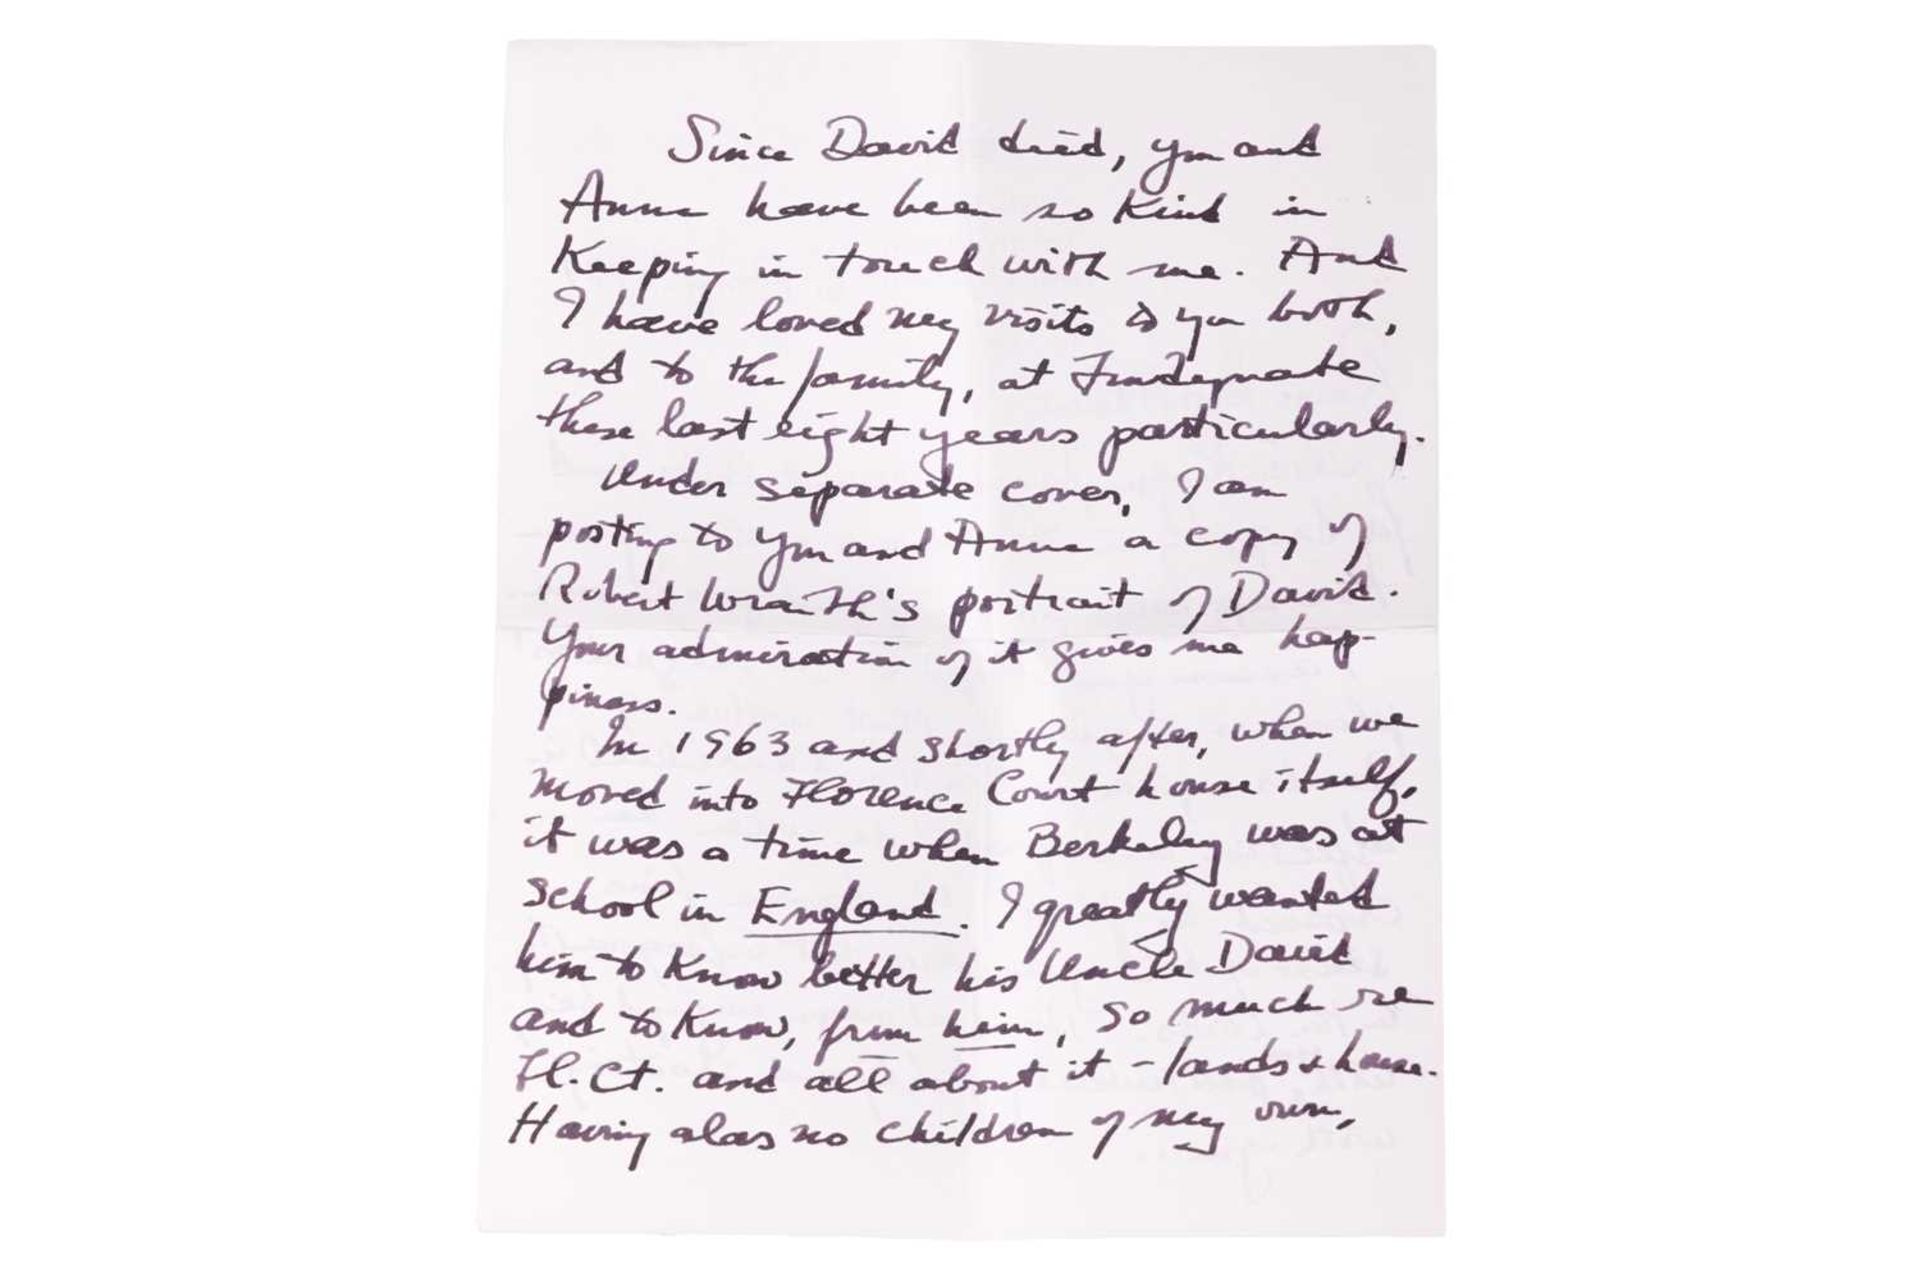 Since David died, you and
Anne have been so kind in
Keeping in touch with me. And
I have loved my visits to you both,
and to the family, at
these last eight years particularly.
Under separate cover, I am
posting to you and Anne a copy of
Robert Wraith's portrait of David.
Your admiration of it gives me hap-
piness.
In 1963 and shortly after, when we
moved into Florence Court house itself,
it was a time when Berkeley was at
school in England. I greatly wanted
him to Know better his Uncle David
and to Know, from him, so much re
Fl. Ct. and all about it - lands & house.
Having alas no children of my own,